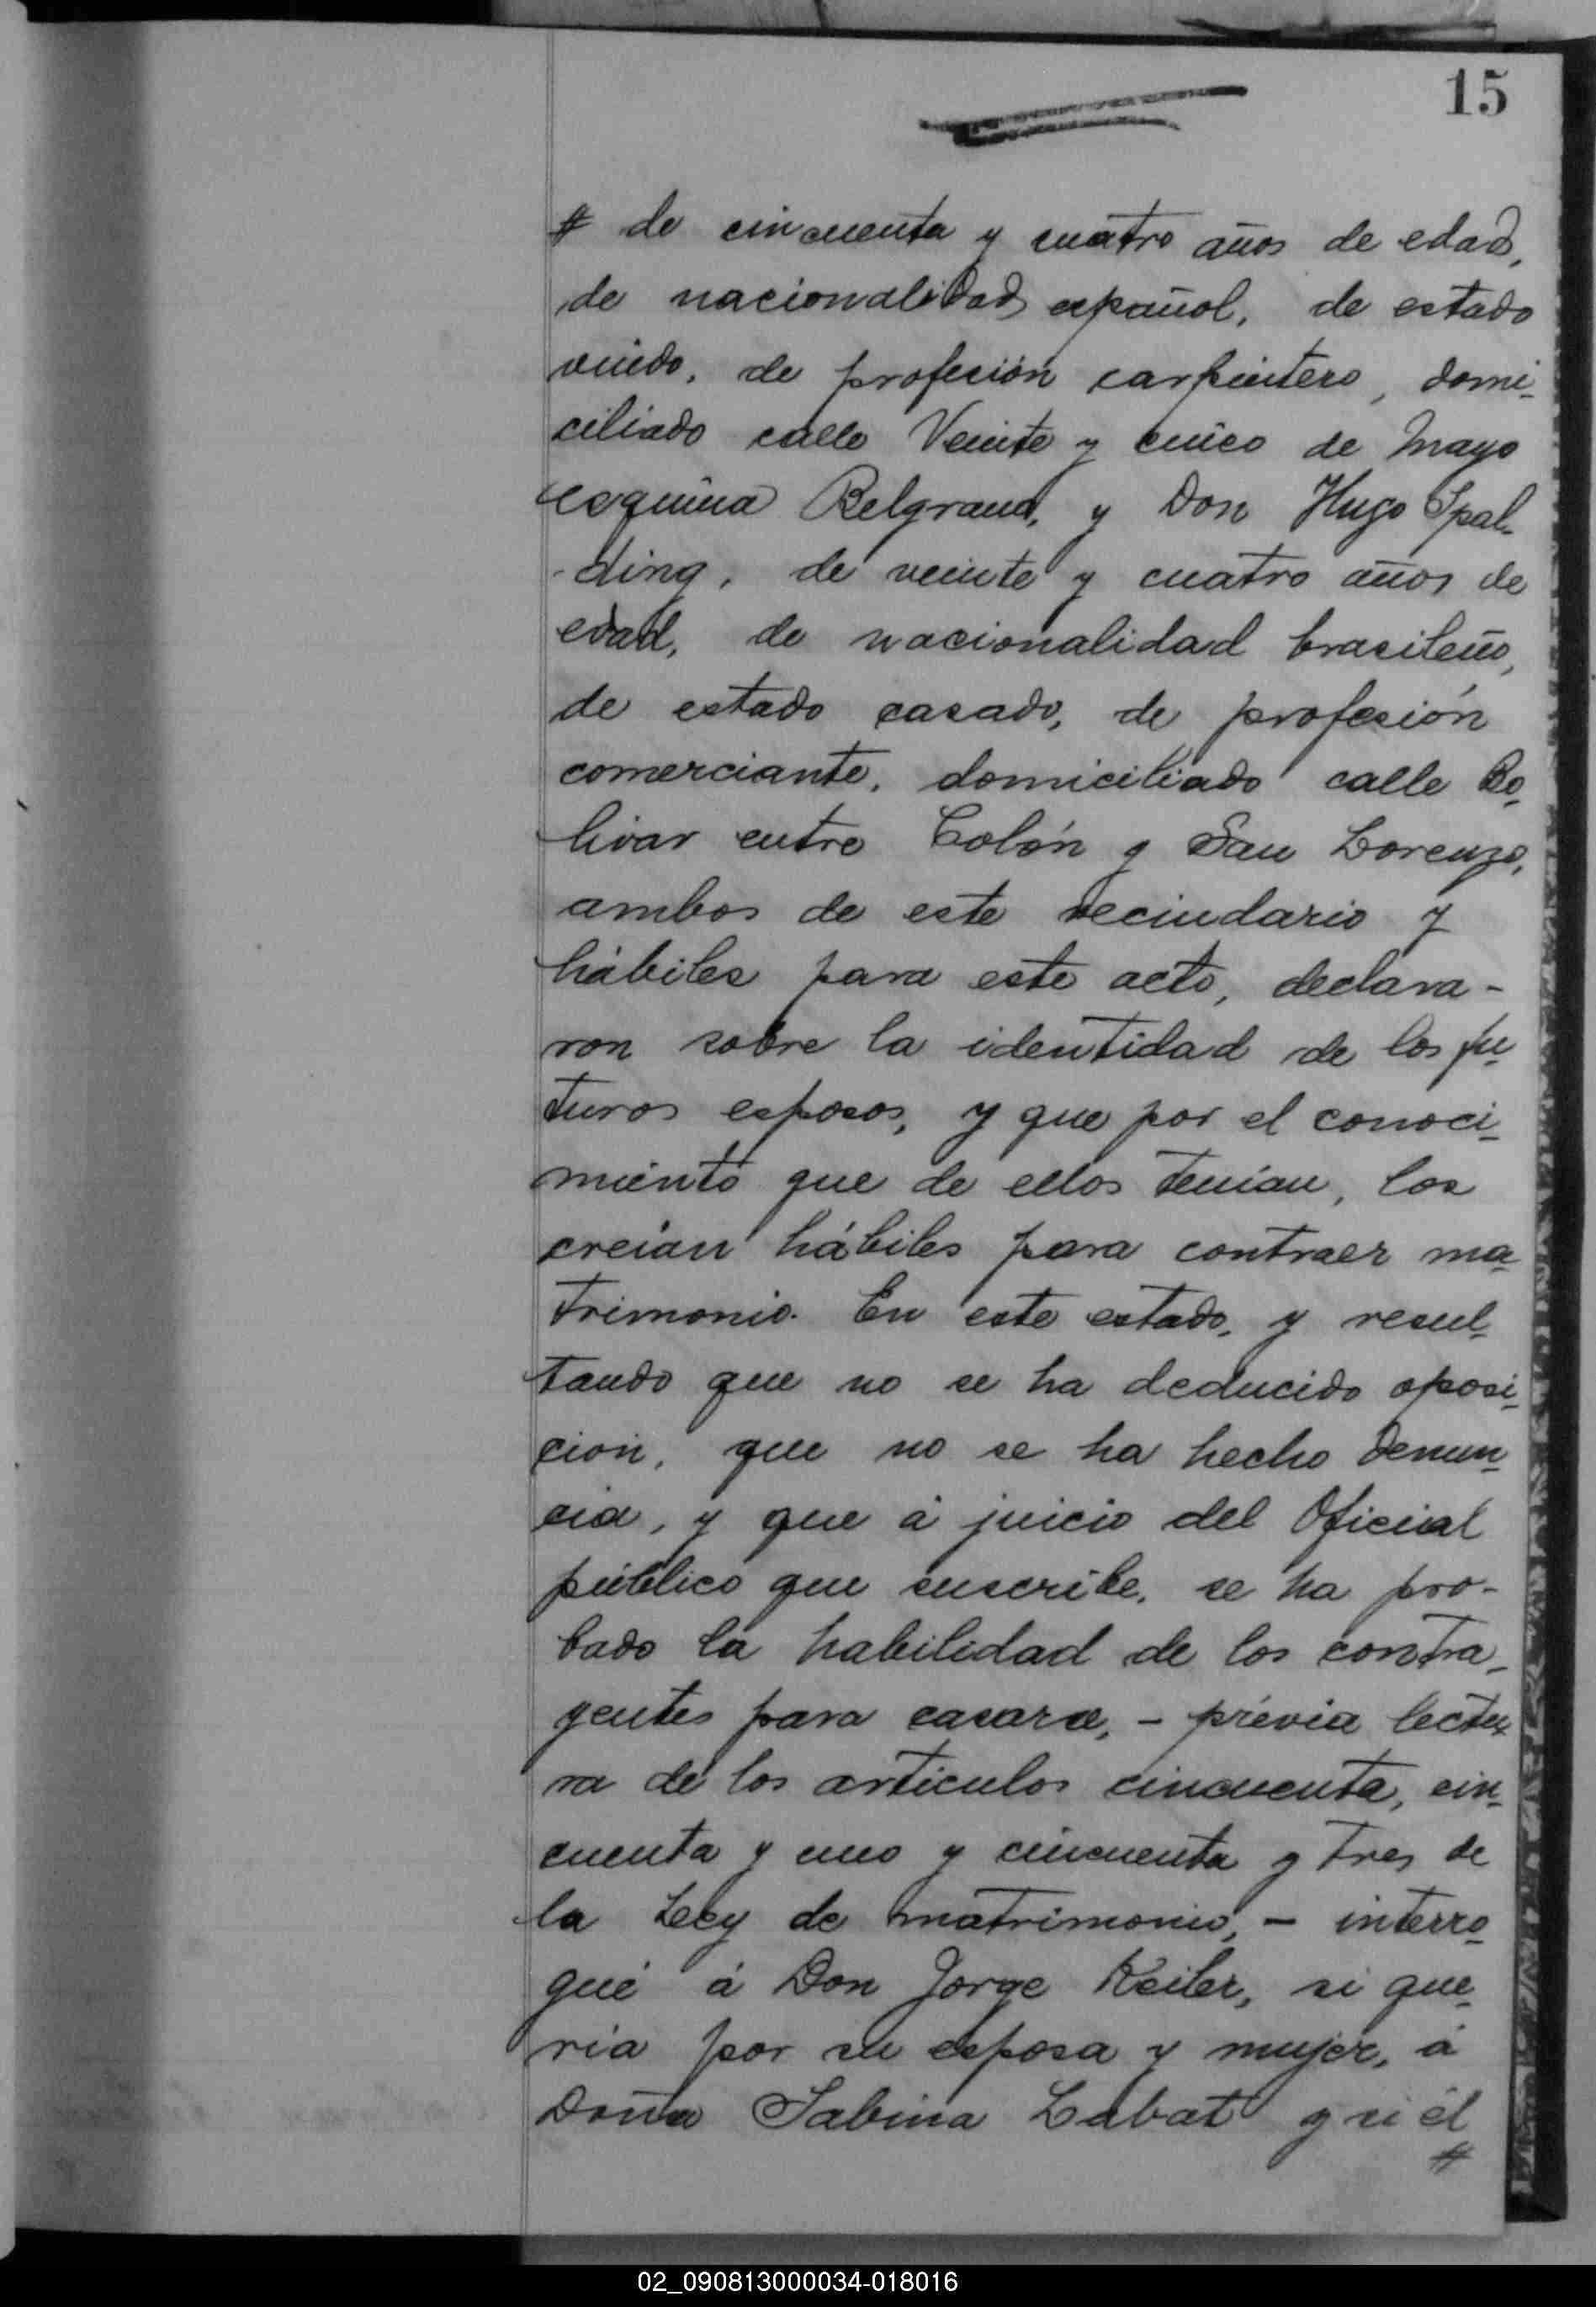 15
# de cincuenta y cuatro años de edad,
de nacionalidad español, de estado
viudo, de profesión carpintero, domi-
ciliado calle Veinte y cinco de Mayo
esquina Belgrano, y Don Hugo Spal-
-ding, de veinte y cuatro años de
edad, de nacionalidad brasileño,
de estado casado, de profesión
comerciante, domiciliado calle Bo-
livar entre Colón y San Lorenzo,
ambos de este vecindario y
hábiles para este acto, declara-
ron sobre la identidad de los fu-
turos esposos, y que por el conoci-
miento que de ellos tenían, los
creían hábiles para contraer ma-
trimonio. En este estado, y resul-
tando que no se ha deducido oposi-
ción, que no se ha hecho denun-
cia, y que á juicio del Oficial
público que suscribe, se ha pro-
bado la habilidad de los contra-
yentes para casarse, - prévia lectu-
ra de los artículos cincuenta, cin-
cuenta y uno y cincuenta y tres de
la Ley de matrimonio, - interro-
gué á Don Jorge Keiler, si que-
ría por su esposa y mujer, á
Doña Sabina Labat y si él
#
02_090813000034-018016